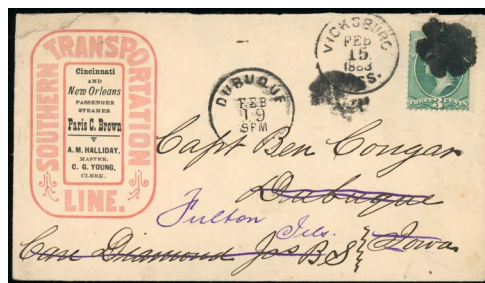 SOUTHERN TRANSPORTATION LINE.
Cincinnati
AND
New Orleans
PASSENGER
STEAMER
Paris C. Brown
A. M. HALLIDAY,
MASTER.
C. G. YOUNG,
CLERK.
DUBUQUE
FEB
19
9PM
VICKSBURG
FEB
15
1883
MISS.
THREE CENTS
Capt Ben Congar
Dubuque
Fulton Ills.
Iowa
Care Diamond Jo B S